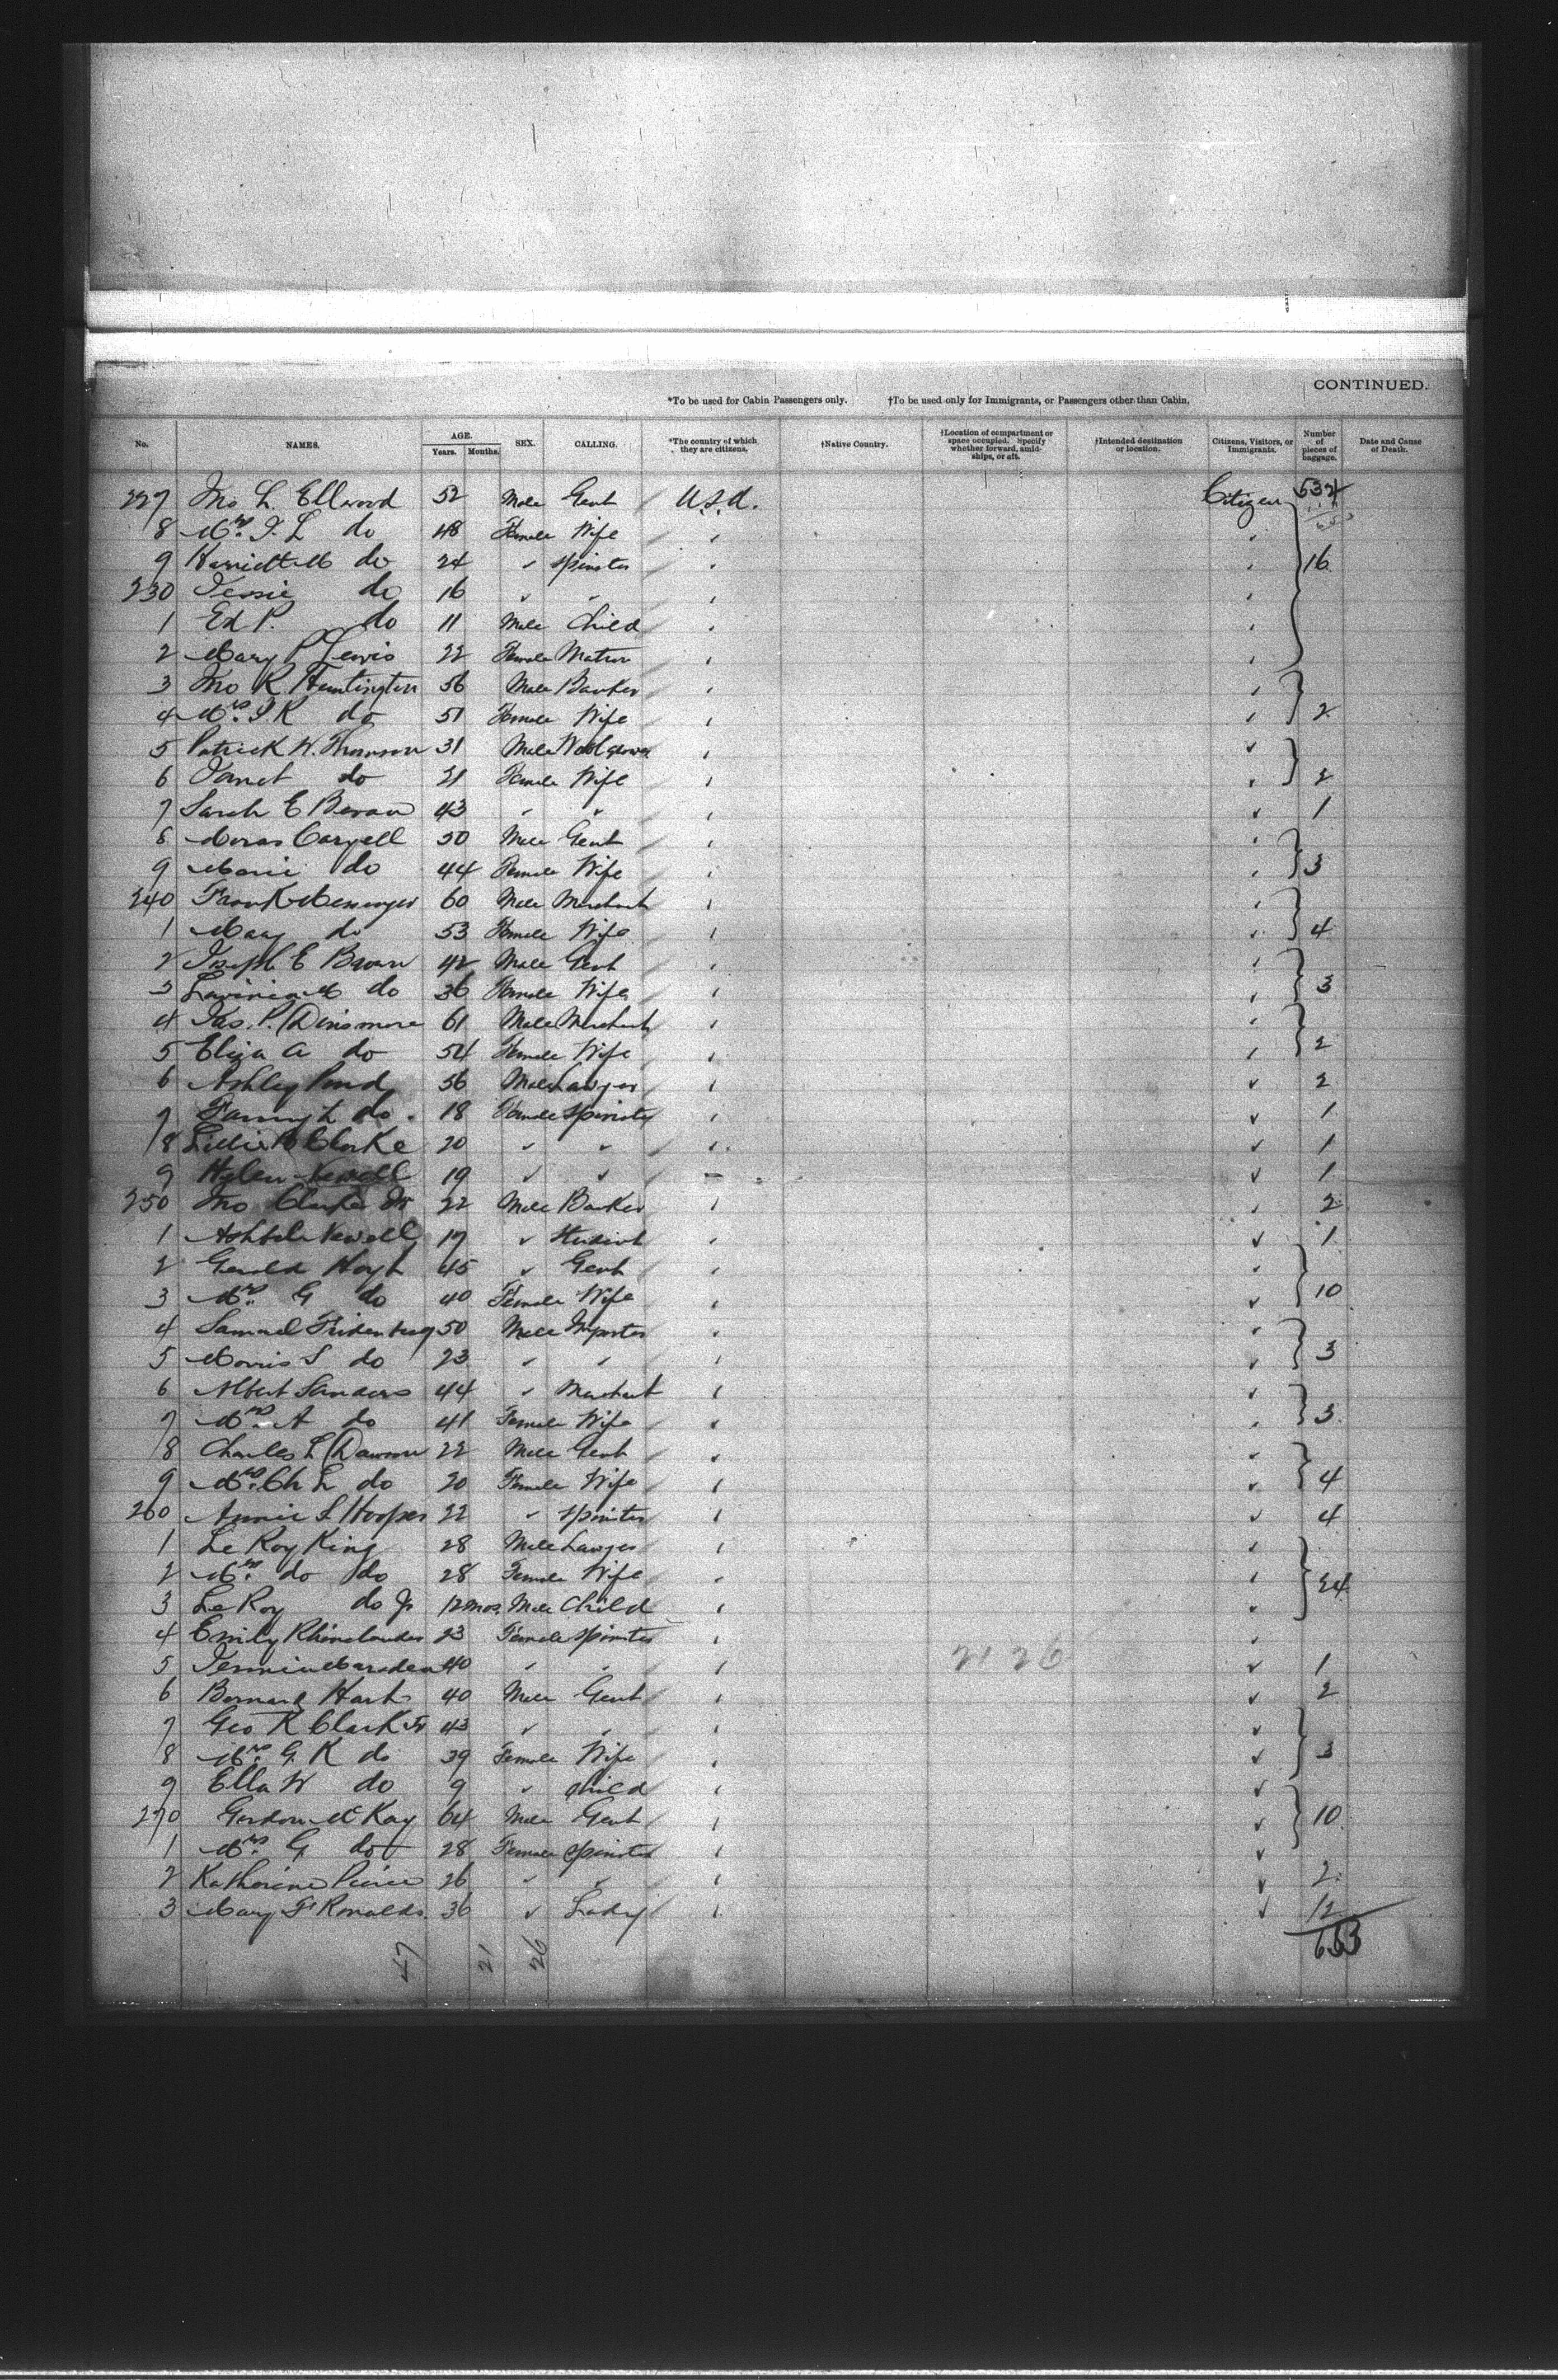 CONTINUED.
*To be used for Cabin Passengers only. †To be used only for Immigrants, or Passengers other than Cabin.
No. NAMES. AGE. Years. Months. SEX. CALLING. *The country of which they are citizens. †Native Country. †Location of compartment or space occupied. Specify whether forward, amidships, or aft. †Intended destination or location. Citizens, Visitors, or Immigrants. Number of pieces of baggage. Date and Cause of Death.
227 Jno L. Ellwood 52 Male Gent U.S.A. Citizen 534
8 Mrs. J. L do 48 Female Wife
9 Harriett M do 24 " Spinster 16
230 Jessie do 16 " "
1 Ed P. do 11 Male Child
2 Mary P Lewis 22 Female Matron
3 Jno R. Huntington 56 Male Banker
4 Mrs. J R do 51 Female Wife 2
5 Patrick W. Thomson 31 Male Woolgrower
6 Janet do 21 Female Wife 2
7 Sarah E Bevan 43 " " 1
8 50 Male Gent
9 Marie do 44 Female Wife 3
240 Frank 60 Male Merchant
1 Mary do 53 Female Wife 4
2 Joseph E Brown 42 Male Gent
3 Lavinia M do 36 Female Wife 3
4 Jas. P. Dinsmore 61 Male Merchant
5 Eliza A do 54 Female Wife 2
6 Ashley Pond 56 Male Lawyer 2
7 Fanny L do 18 Female Spinster 1
8 Lillie B Clarke 20 " " 1
9 Helen Newell 19 " " 1
250 Jno Clarke Jr 22 Male Banker 2
1 Newell 17 " Student 1
2 Gerald Hoyt 45 " Gent
3 Mrs. G do 40 Female Wife 10
4 Samuel Fridenberg 50 Male Importer
5 Morris S do 23 " " 3
6 Albert Sanders 44 " Merchant
7 Mrs. A do 41 Female Wife 3
8 Charles L Dawson 22 Male Gent
9 Mrs. Ch L do 20 Female Wife 4
260 Annie S Hooper 22 " Spinster 4
1 Le Roy King 28 Male Lawyer
2 Mrs. do do 28 Female Wife 24
3 Le Roy do Jr 12 mos. Male Child
4 Emily Rhinelander 23 Female Spinster
5 Marsden 40 " " 21 26 1
6 Bernard Hart 40 Male Gent 2
7 Geo K Clark Jr 43 " "
8 Mrs. G K do 39 Female Wife 3
9 Ella W do 9 " Child
270 Gordon McKay 64 Male Gent 10
1 Mrs. G do 28 Female Spinster
2 Katherine Pierce 26 " " 2
3 Mary F Ronalds. 36 " Lady 12
47 21 26 653